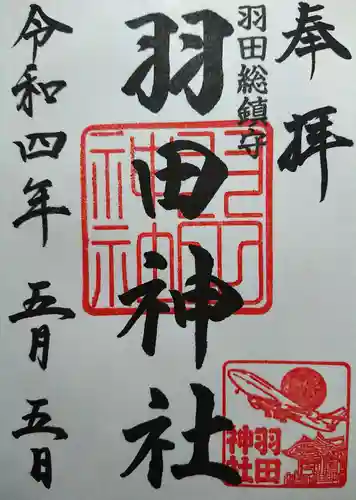 奉拝
羽田総鎮守
羽田神社
令和四年 五月 五日
羽田神社
羽田
神社